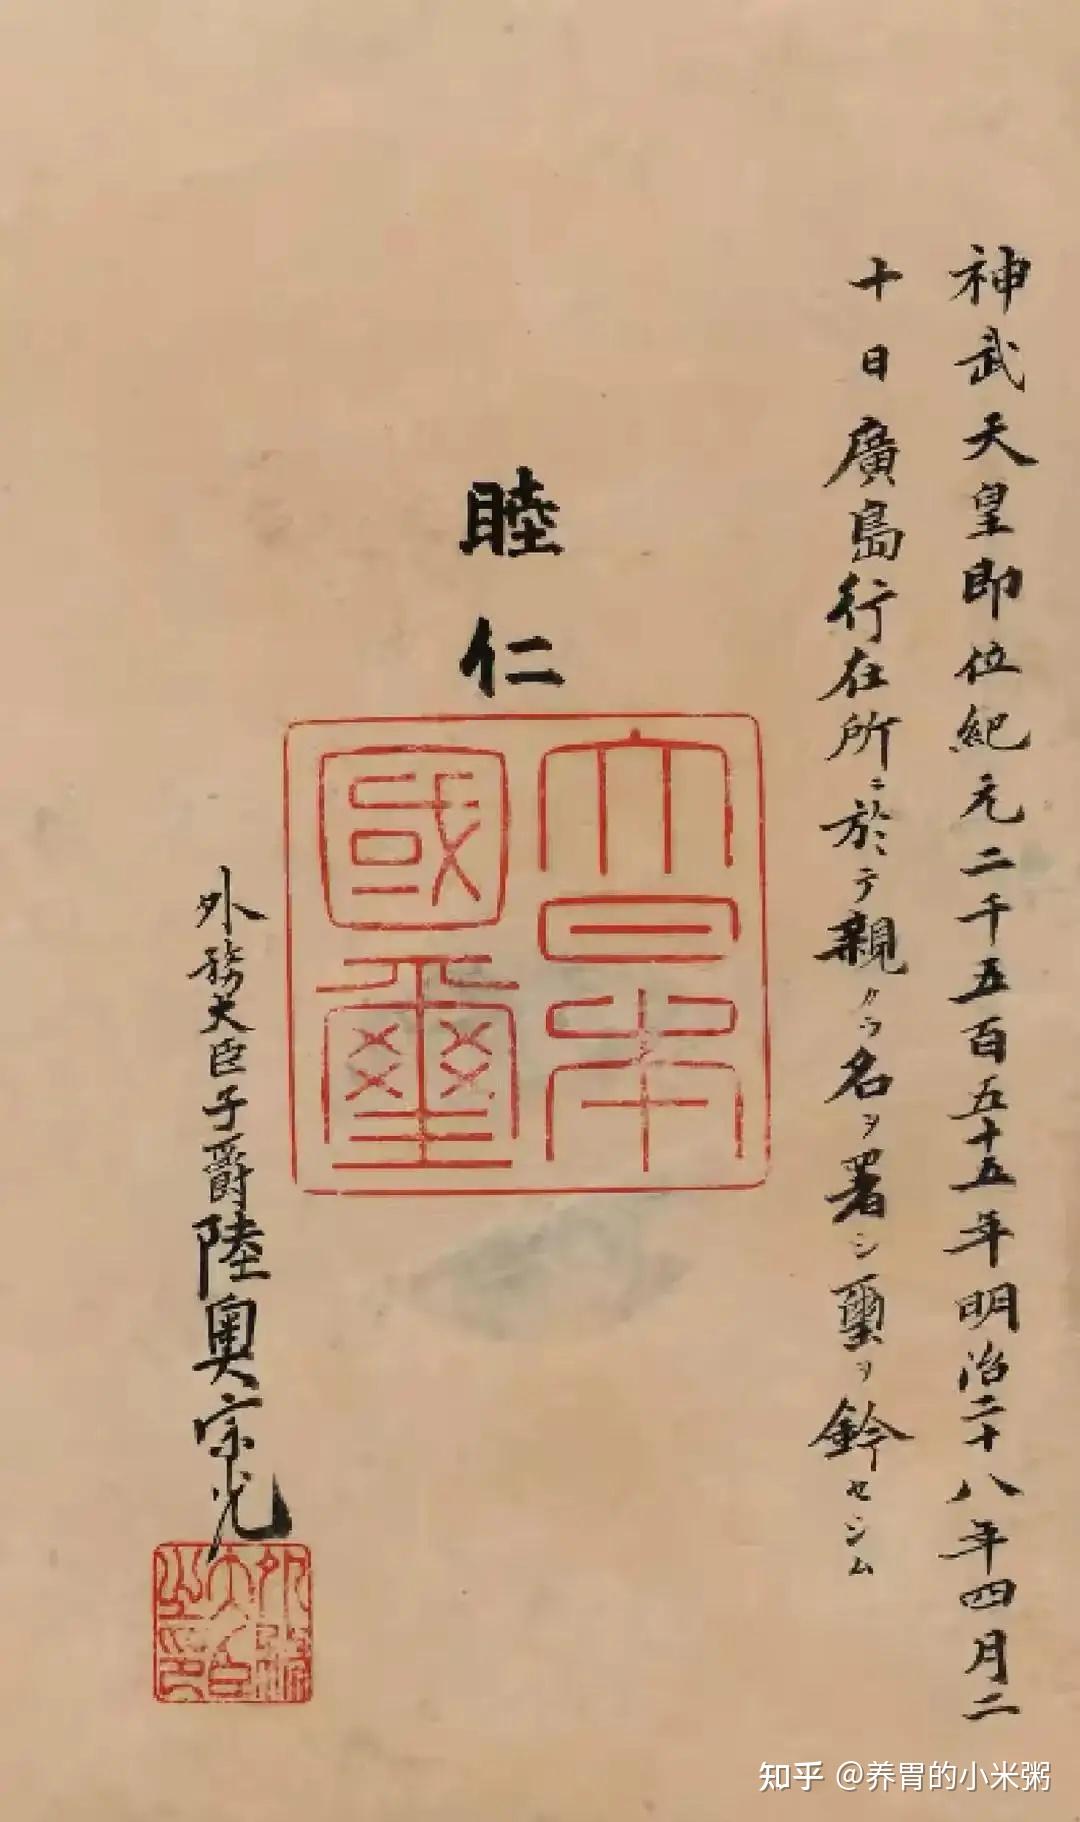 神武天皇即位紀元二千五百五十五年明治二十八年四月二
十日廣島行在所ニ於テ親クラ名ヲ署シ璽ヲ鈐セシム
睦仁
大日本
國璽
外務大臣子爵陸奥宗光
外務
大臣
之印
知乎 @养胃的小米粥